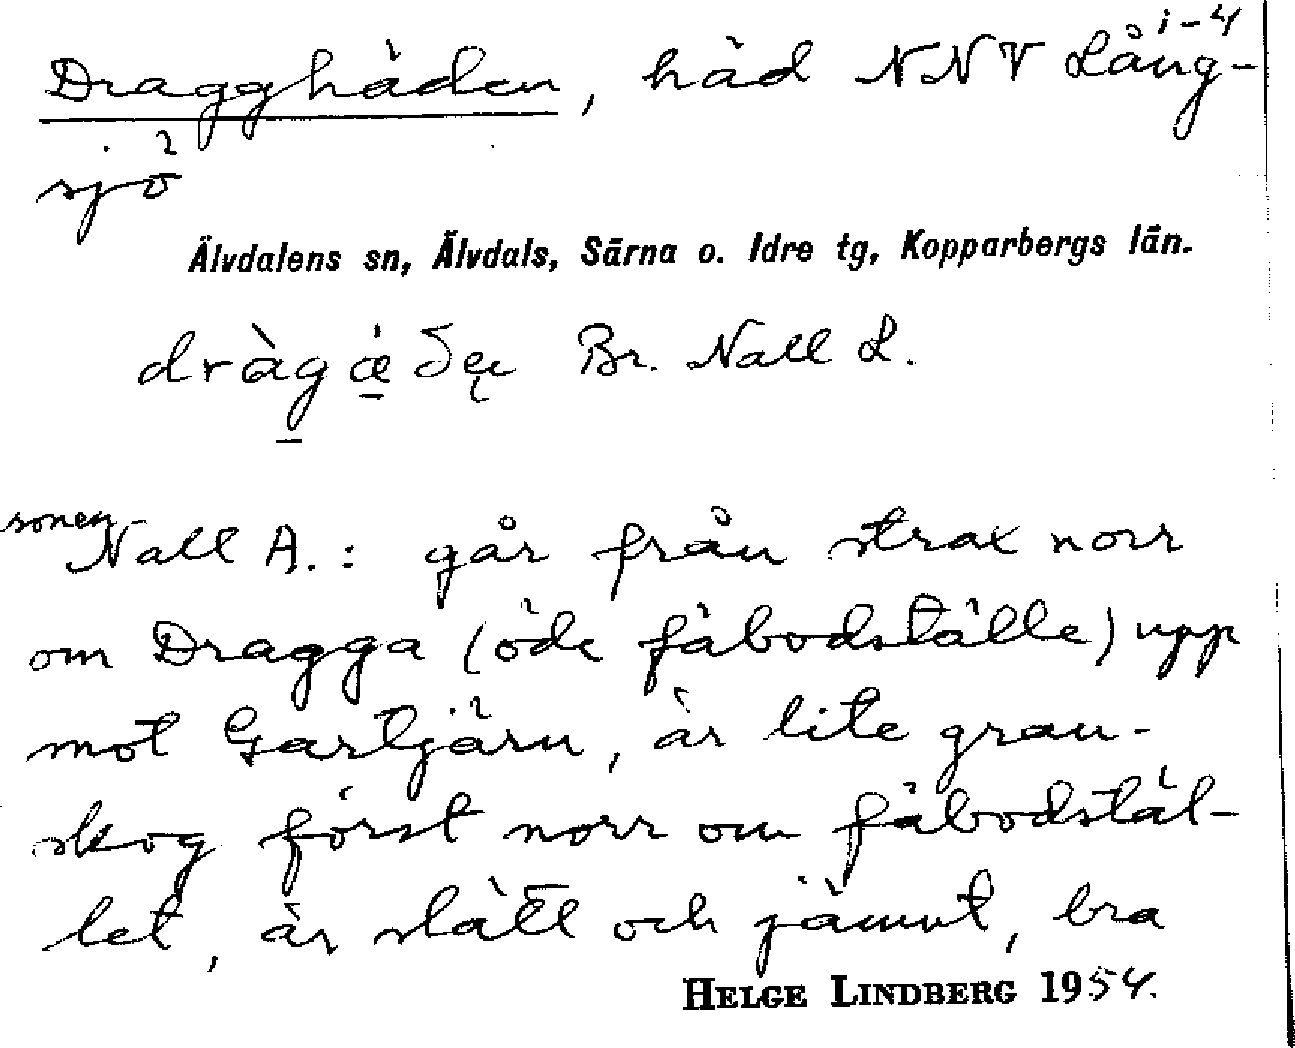 i-4
Dragghäden, häd NNV Lång-
sjö
Älvdalens sn, Älvdals, Särna o. Idre tg, Kopparbergs län.
dràgǽðen Br. Nall L.
sonen
Nall A.: går från strax norr
om Dragga (öde fäbodställe) upp
mot Gartjärn, är lite gran-
skog först norr om fäbodstäl-
let, är slätt och jämnt, bra
HELGE LINDBERG 1954.